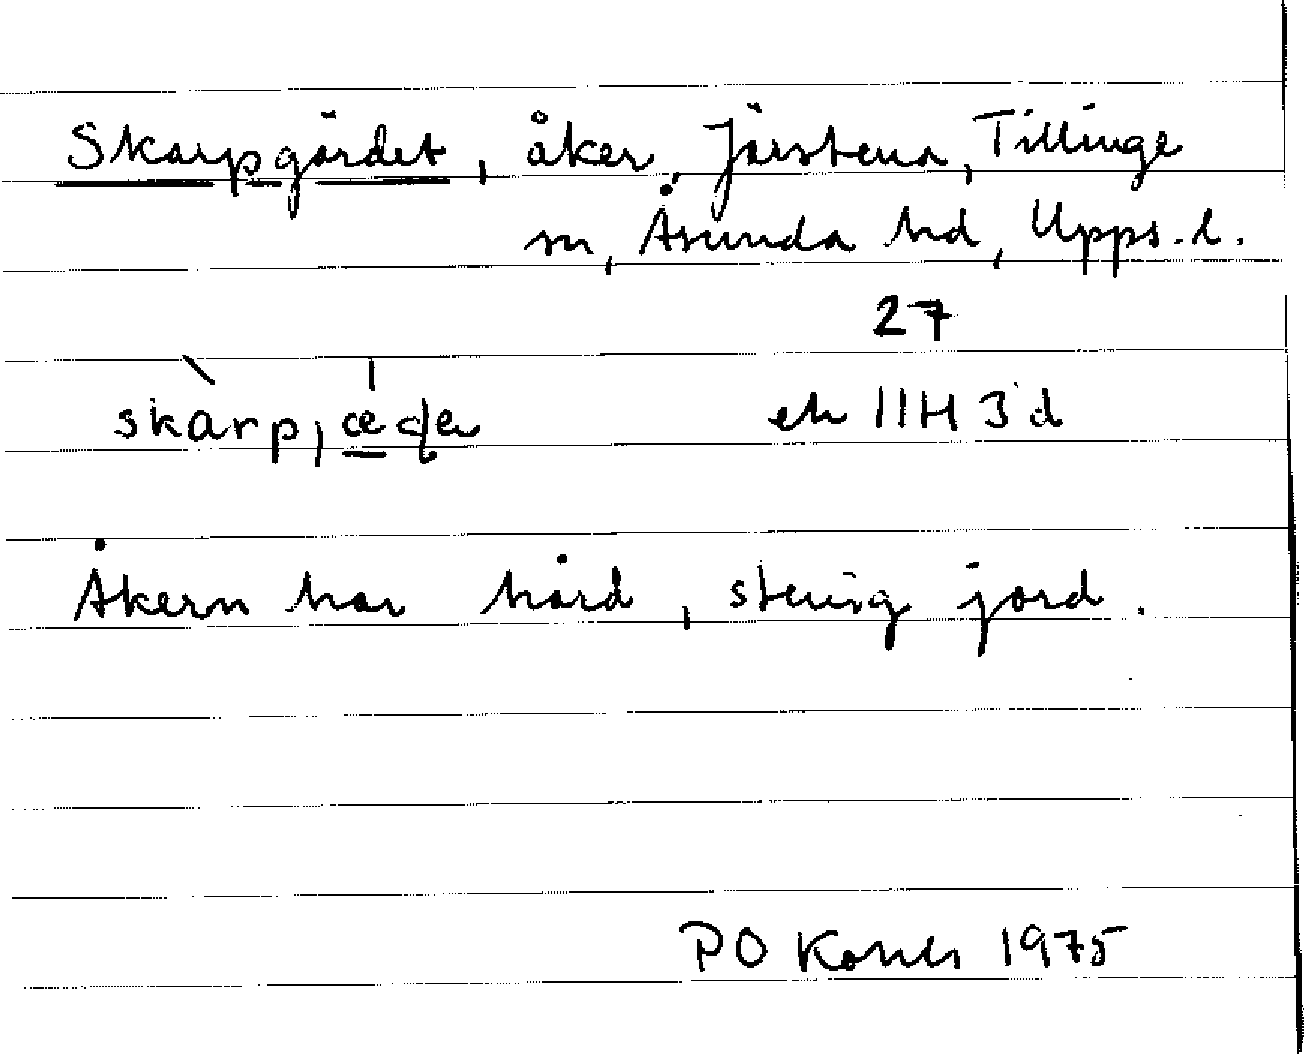 Skarpgärdet, åker, Järstena, Tillinge
sn, Åsunda hd, Upps. l.
27
skàrp,
ek 11H 3d
Åkern har hård, stenig jord.
PO 1975